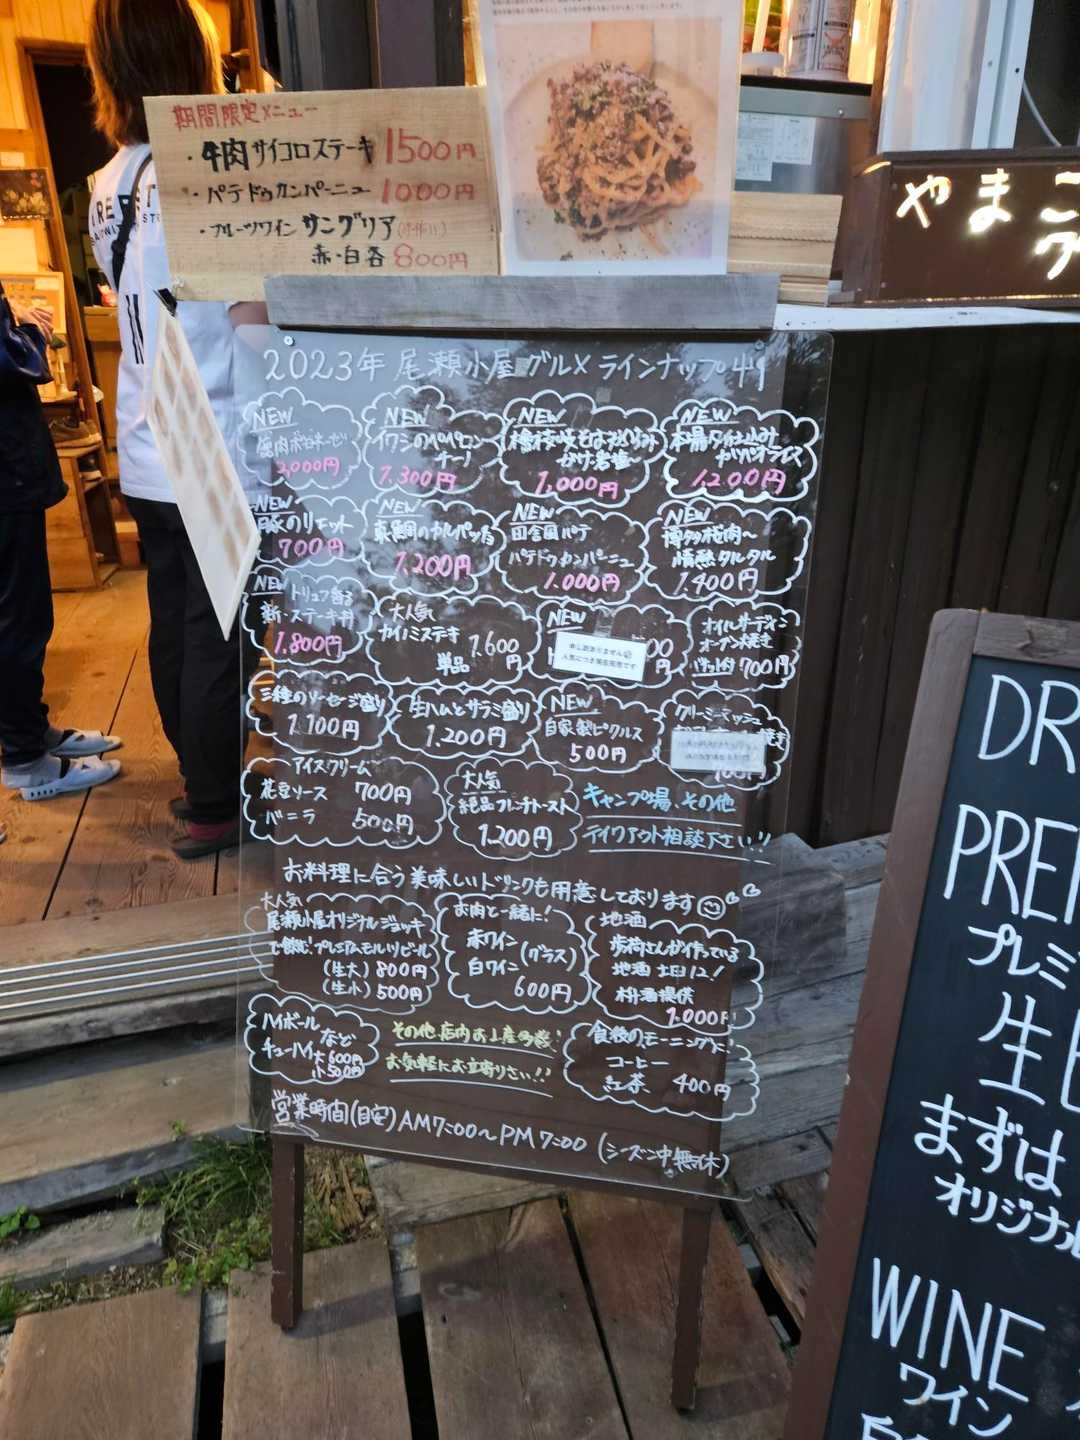 期間限定メニュー
・牛肉サイコロステーキ 1500円
・パテドゥカンパーニュ 1000円
・フルーツワイン サングリア
赤・白各 800円
やまご
2023年 尾瀬小屋グルメ ラインナップ
NEW
2,000円
NEW
イワシのペペロン
チーノ
1,300円
NEW
檜枝岐そば
かけ岩塩〜
1,000円
NEW
本場タイ
ガパオライス
1,200円
NEW
豚のリエット
700円
NEW
真鯛のカルパッチョ
1,200円
NEW
田舎風パテ
パテドゥカンパーニュ
1,000円
NEW
博多桜肉〜
情熱タルタル
1,400円
NEW トリュフ香る
新・ステーキ丼
1,800円
大人気
カイノミステキ
単品 1,600円
NEW
申し訳ありません
人気につき
00円
オイルサーディン
オーブン焼き
バケット付 700円
三種のソーセージ盛り
1,100円
生ハムとサラミ盛り
1,200円
NEW
自家製ピクルス
500円
クリーミーマッシュ
アイスクリーム
花豆ソース 700円
バニラ 500円
大人気
絶品フレンチトースト
1,200円
キャンプ場、その他
テイクアウト相談下さい!!
お料理に合う美味しいドリンクも用意しております
大人気
尾瀬小屋オリジナルジョッキ
で飲む!プレミアムモルツビール
(生大) 800円
(生小) 500円
お肉と一緒に!
赤ワイン
白ワイン
(グラス)
600円
地酒
歩荷さんが作っている
地酒
枡酒提供
1,000円
ハイボール
など
チューハイ 大 600円
小 500円
その他、店内お土産多数!
お気軽にお立寄りさい!!
食後のモーニングに!
コーヒー
紅茶 400円
営業時間(目安) AM7:00〜PM7:00 (シーズン中無休)
DR
PREM
プレミ
生
まずは
オリジナル
WINE
ワイン